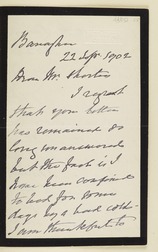 Banagher
22 Sept. 1902
Dear Mr. Shorter
I regret
that your letter
has remained so
long unanswered
but the fact is I
have been confined
to bed for some
days by a bad cold-
I am thankful to